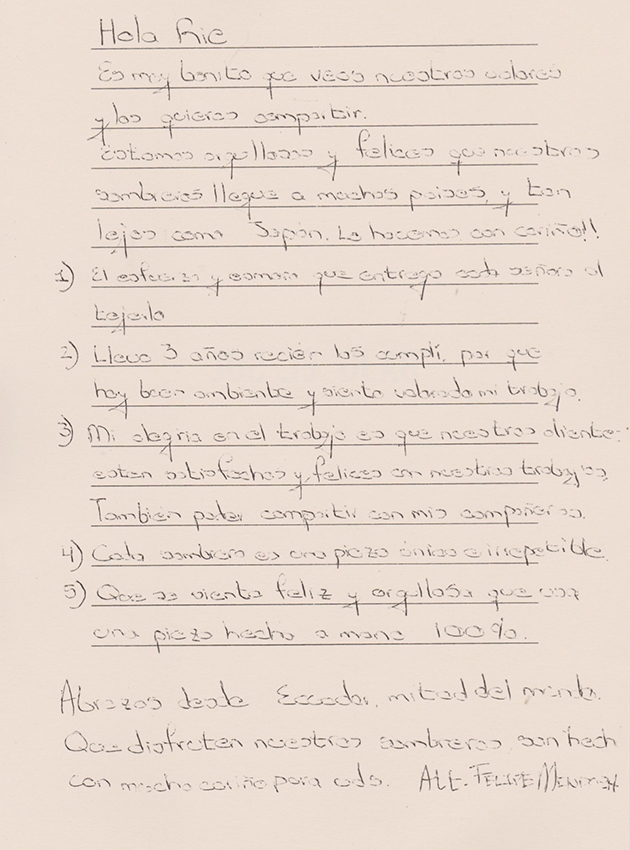 Hola Rie
Es muy bonito que veas nuestros valores
y los quieras compartir.
Estamos orgullosos y felices que nuestros
sombreros llegue a muchos paises, y tan
lejos como Japon. Lo hacemos con cariño!!
1) El esfuerzo y esmero que entrega cada señora al
tejerlo
2) Llevo 3 años recién los cumplí, por que
hay buen ambiente y siento valorado mi trabajo.
3) Mi alegria en el trabajo es que nuestros cliente
esten satisfechos y felices con nuestros trabajos.
Tambien poder compartir con mis compañeros.
4) Cada sombrero es una pieza única e irrepetible.
5) Que se sienta feliz y orgullosa que usa
una pieza hecha a mano 100%.
Abrazos desde Ecuador, mitad del mundo.
Que disfruten nuestros sombreros, son hech
con mucho cariño para uds. Att. FELIPE